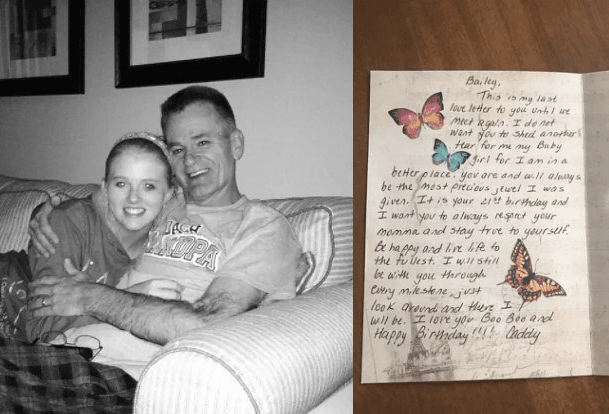 GRANDPA
Bailey,
This is my last
love letter to you until we
meet again. I do not
want you to shed another
tear for me my Baby
girl for I am in a
better place. you are and will always
be the most precious jewel I was
given. It is your 21st birthday and
I want you to always respect your
momma and stay true to yourself.
Be happy and live life to
the fullest. I will still
be with you through
every milestone, just
look around and there I
will be. I love you Boo Boo and
Happy Birthday!!!! Daddy